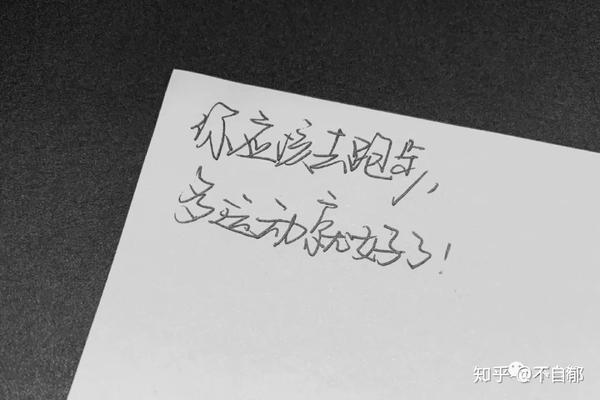 你应该去跑步,
多运动就好了!
知乎 @不自郁